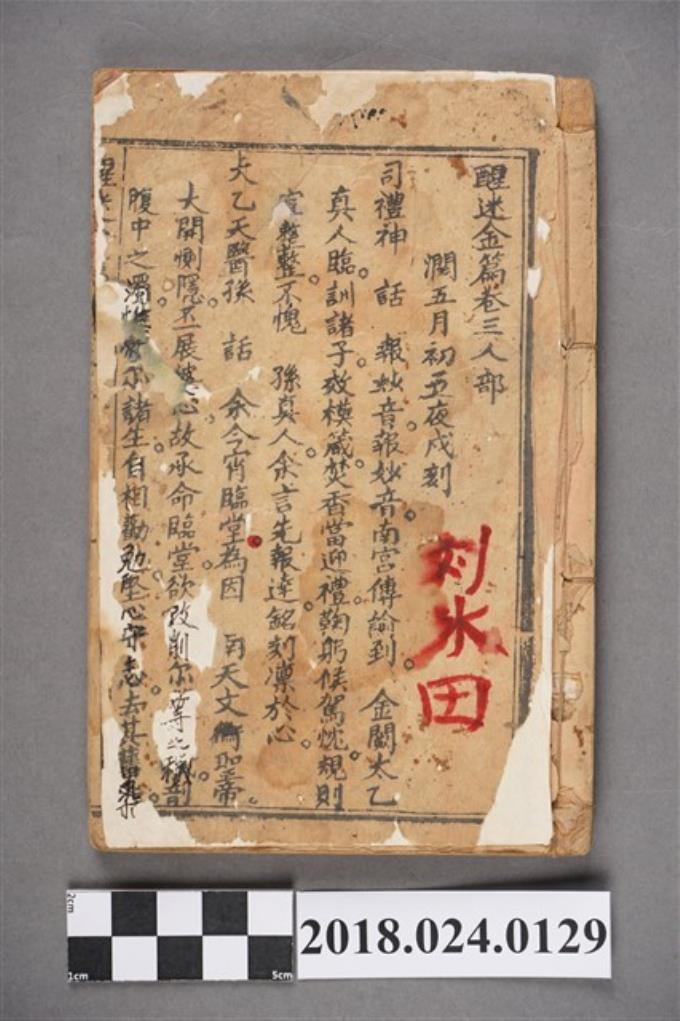 醒迷金篇卷三人部
潤五月初五夜戌刻
刘水田
司禮神 話 報妙音。報妙音。南宮傳諭到。 金闕太乙
真人臨。訓諸子。效模箴。焚香當迎禮。鞠躬候駕忱。規則
宜整整不愧 孫真人。余言先報達。銘刻凛於心。
太乙天醫孫 話 余今宵臨堂為因 南天文衡聖帝。
大開惻隱。丕展婆心。故承命臨堂。欲改削尔等之穢。剖
腹中之濁。 尔諸生自相勸勉。堅心守志。去其
2cm
1cm
5cm
2018.024.0129